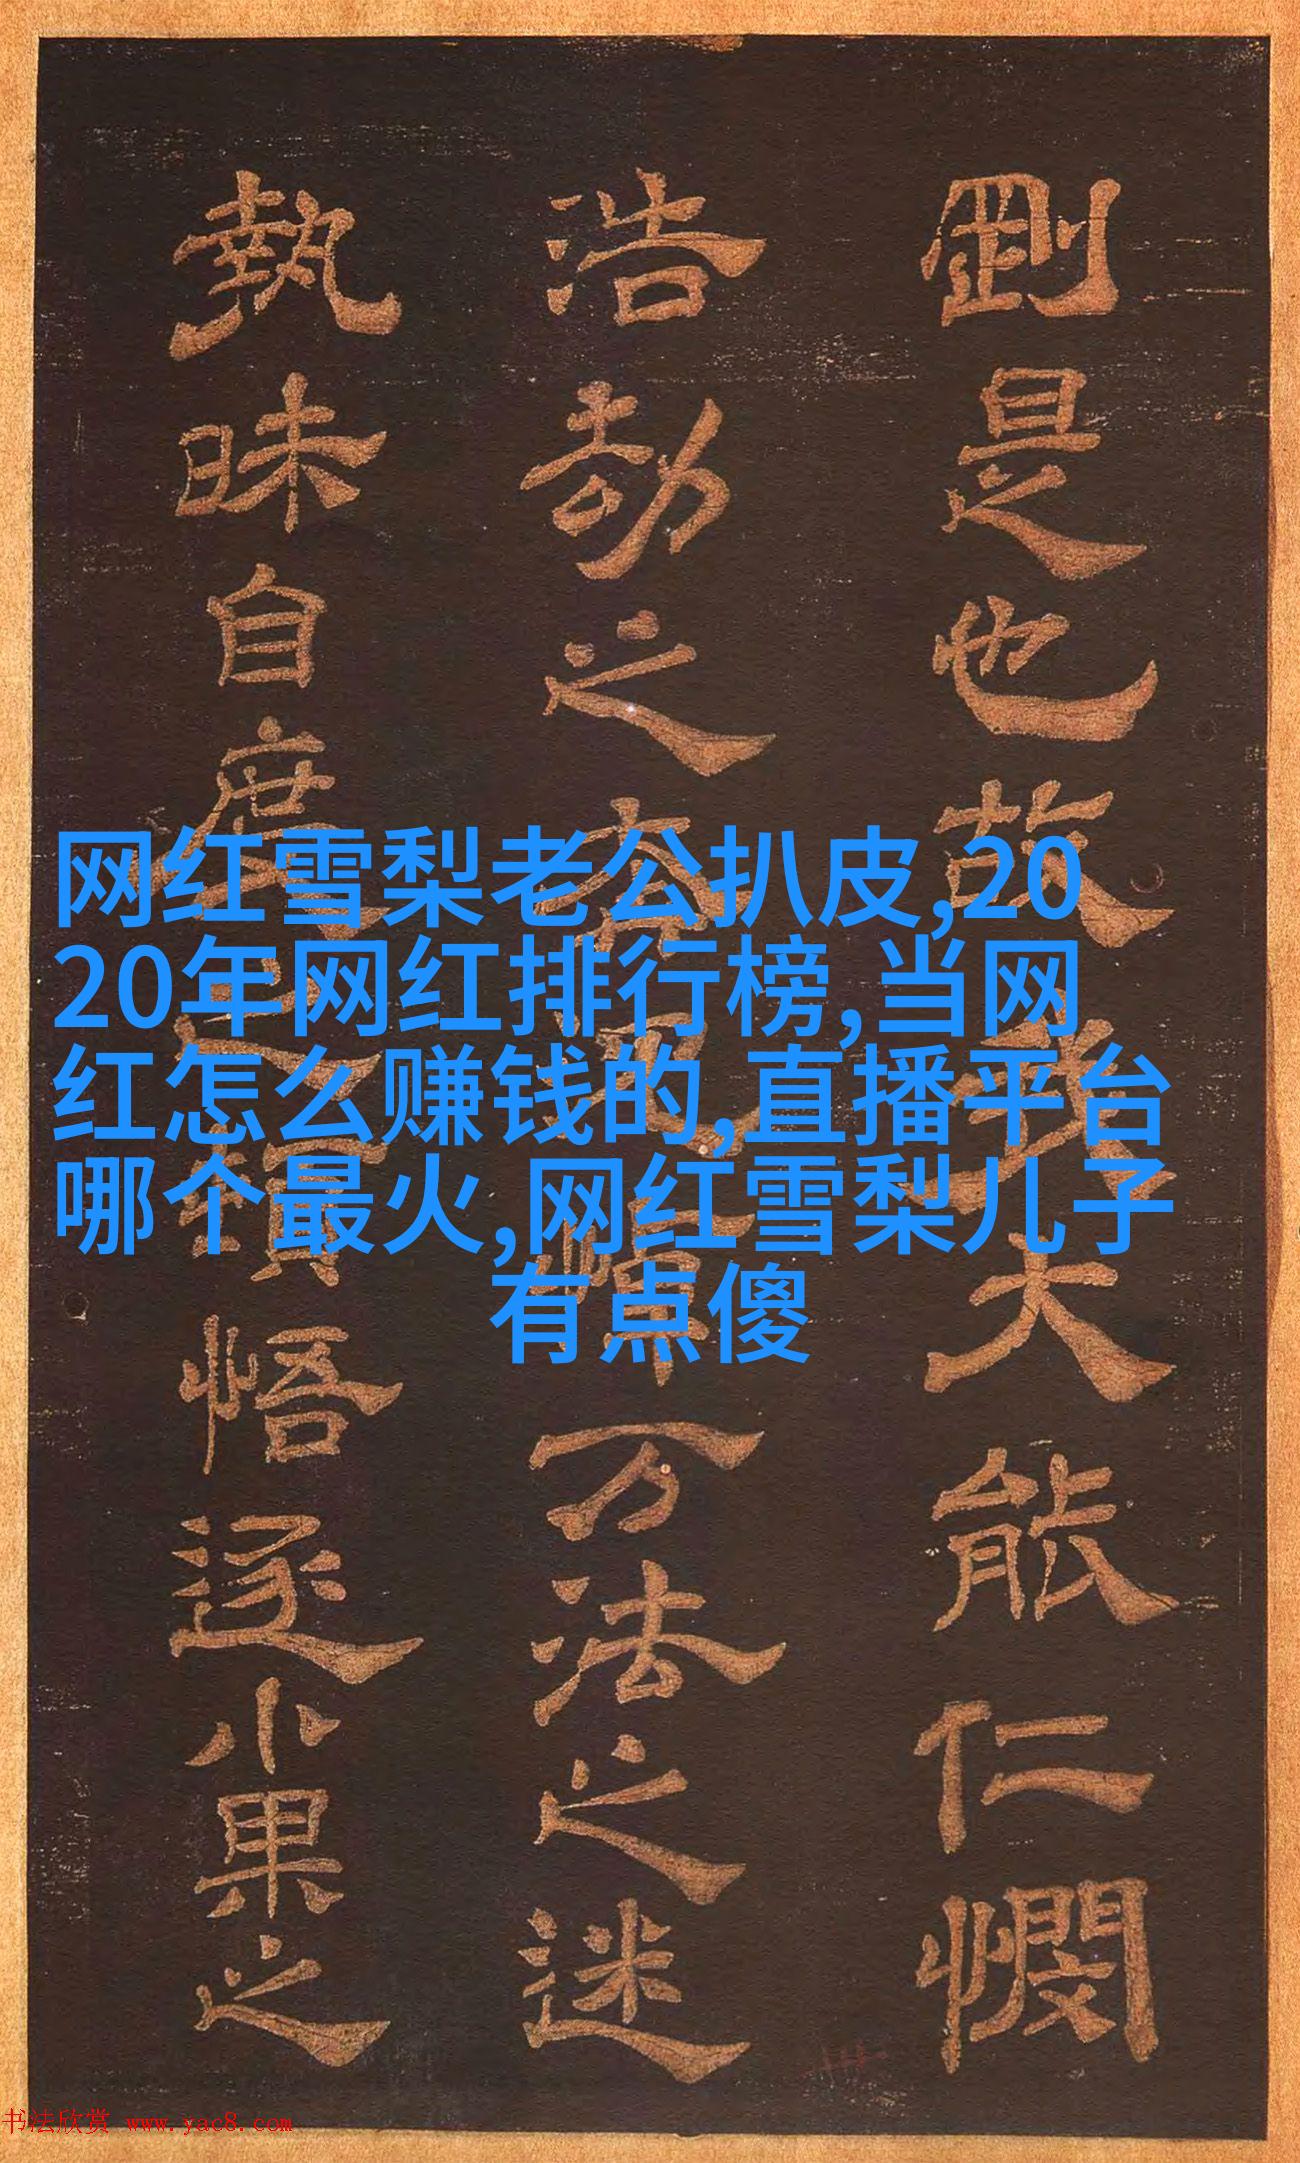 剛是也故我大能仁憫
浩劫之万法之迷
執昧自度之悟遂小果之
网红雪梨老公扒皮,20
20年网红排行榜,当网
红怎么赚钱的,直播平台
哪个最火,网红雪梨儿子
有点傻
书法欣赏 www.yac8.com